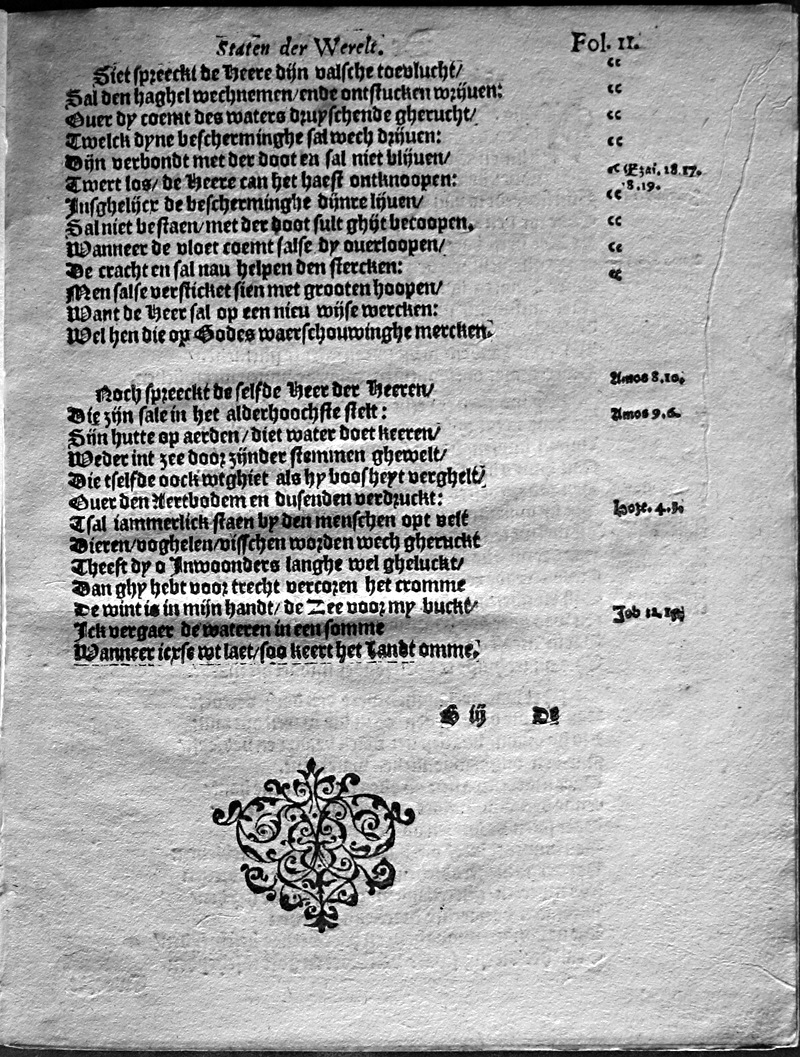 Staten der Werelt. Fol. 11.
Siet spreeckt de Heere dijn valsche toevlucht/ “
Sal den haghel wechnemen/ende ontstucken wrijuen: “
Ouer dy coemt des waters druyschende gherucht/ “
Twelck dyne bescherminghe sal wech drijuen: “
Dijn verbondt met der doot en sal niet blijuen/ “ Ezai. 18.17.
Twert los/ de Heere can het haest ontknoopen: 8.19.
Insghelijcx de bescherminghe dijnre lijuen/ “
Sal niet bestaen/met der doot sult ghijt becoopen. “
Wanneer de vloet coemt salse dy ouerloopen/ “
De cracht en sal nau helpen den stercken: “
Men salse versticket sien met grooten hoopen/
Want de Heer sal op een nieu wijse wercken:
Wel hen die op Godes waerschouwinghe mercken.
Noch spreeckt de selfde Heer der Heeren/ Amos 8.10.
Die zijn sale in het alderhoochste stelt: Amos 9.6.
Sijn hutte op aerden/diet water doet keeren/
Weder int zee door zijnder stemmen ghewelt/
Die tselfde oock wtghiet als hy boosheyt verghelt/
Ouer den Aertbodem en dusenden verdruckt: Hoze. 4.3.
Tsal iammerlick staen by den menschen opt velt
Dieren/voghelen/visschen worden wech gheruckt
Theeft dy o Inwoonders langhe wel gheluckt/
Dan ghy hebt voor trecht vercoren het cromme
De wint is in mijn handt/ de Zee voor my buckt/ Job 12.
Ick vergaer de wateren in een somme
Wanneer icxse wt laet/soo keert het Landt omme.
iij De